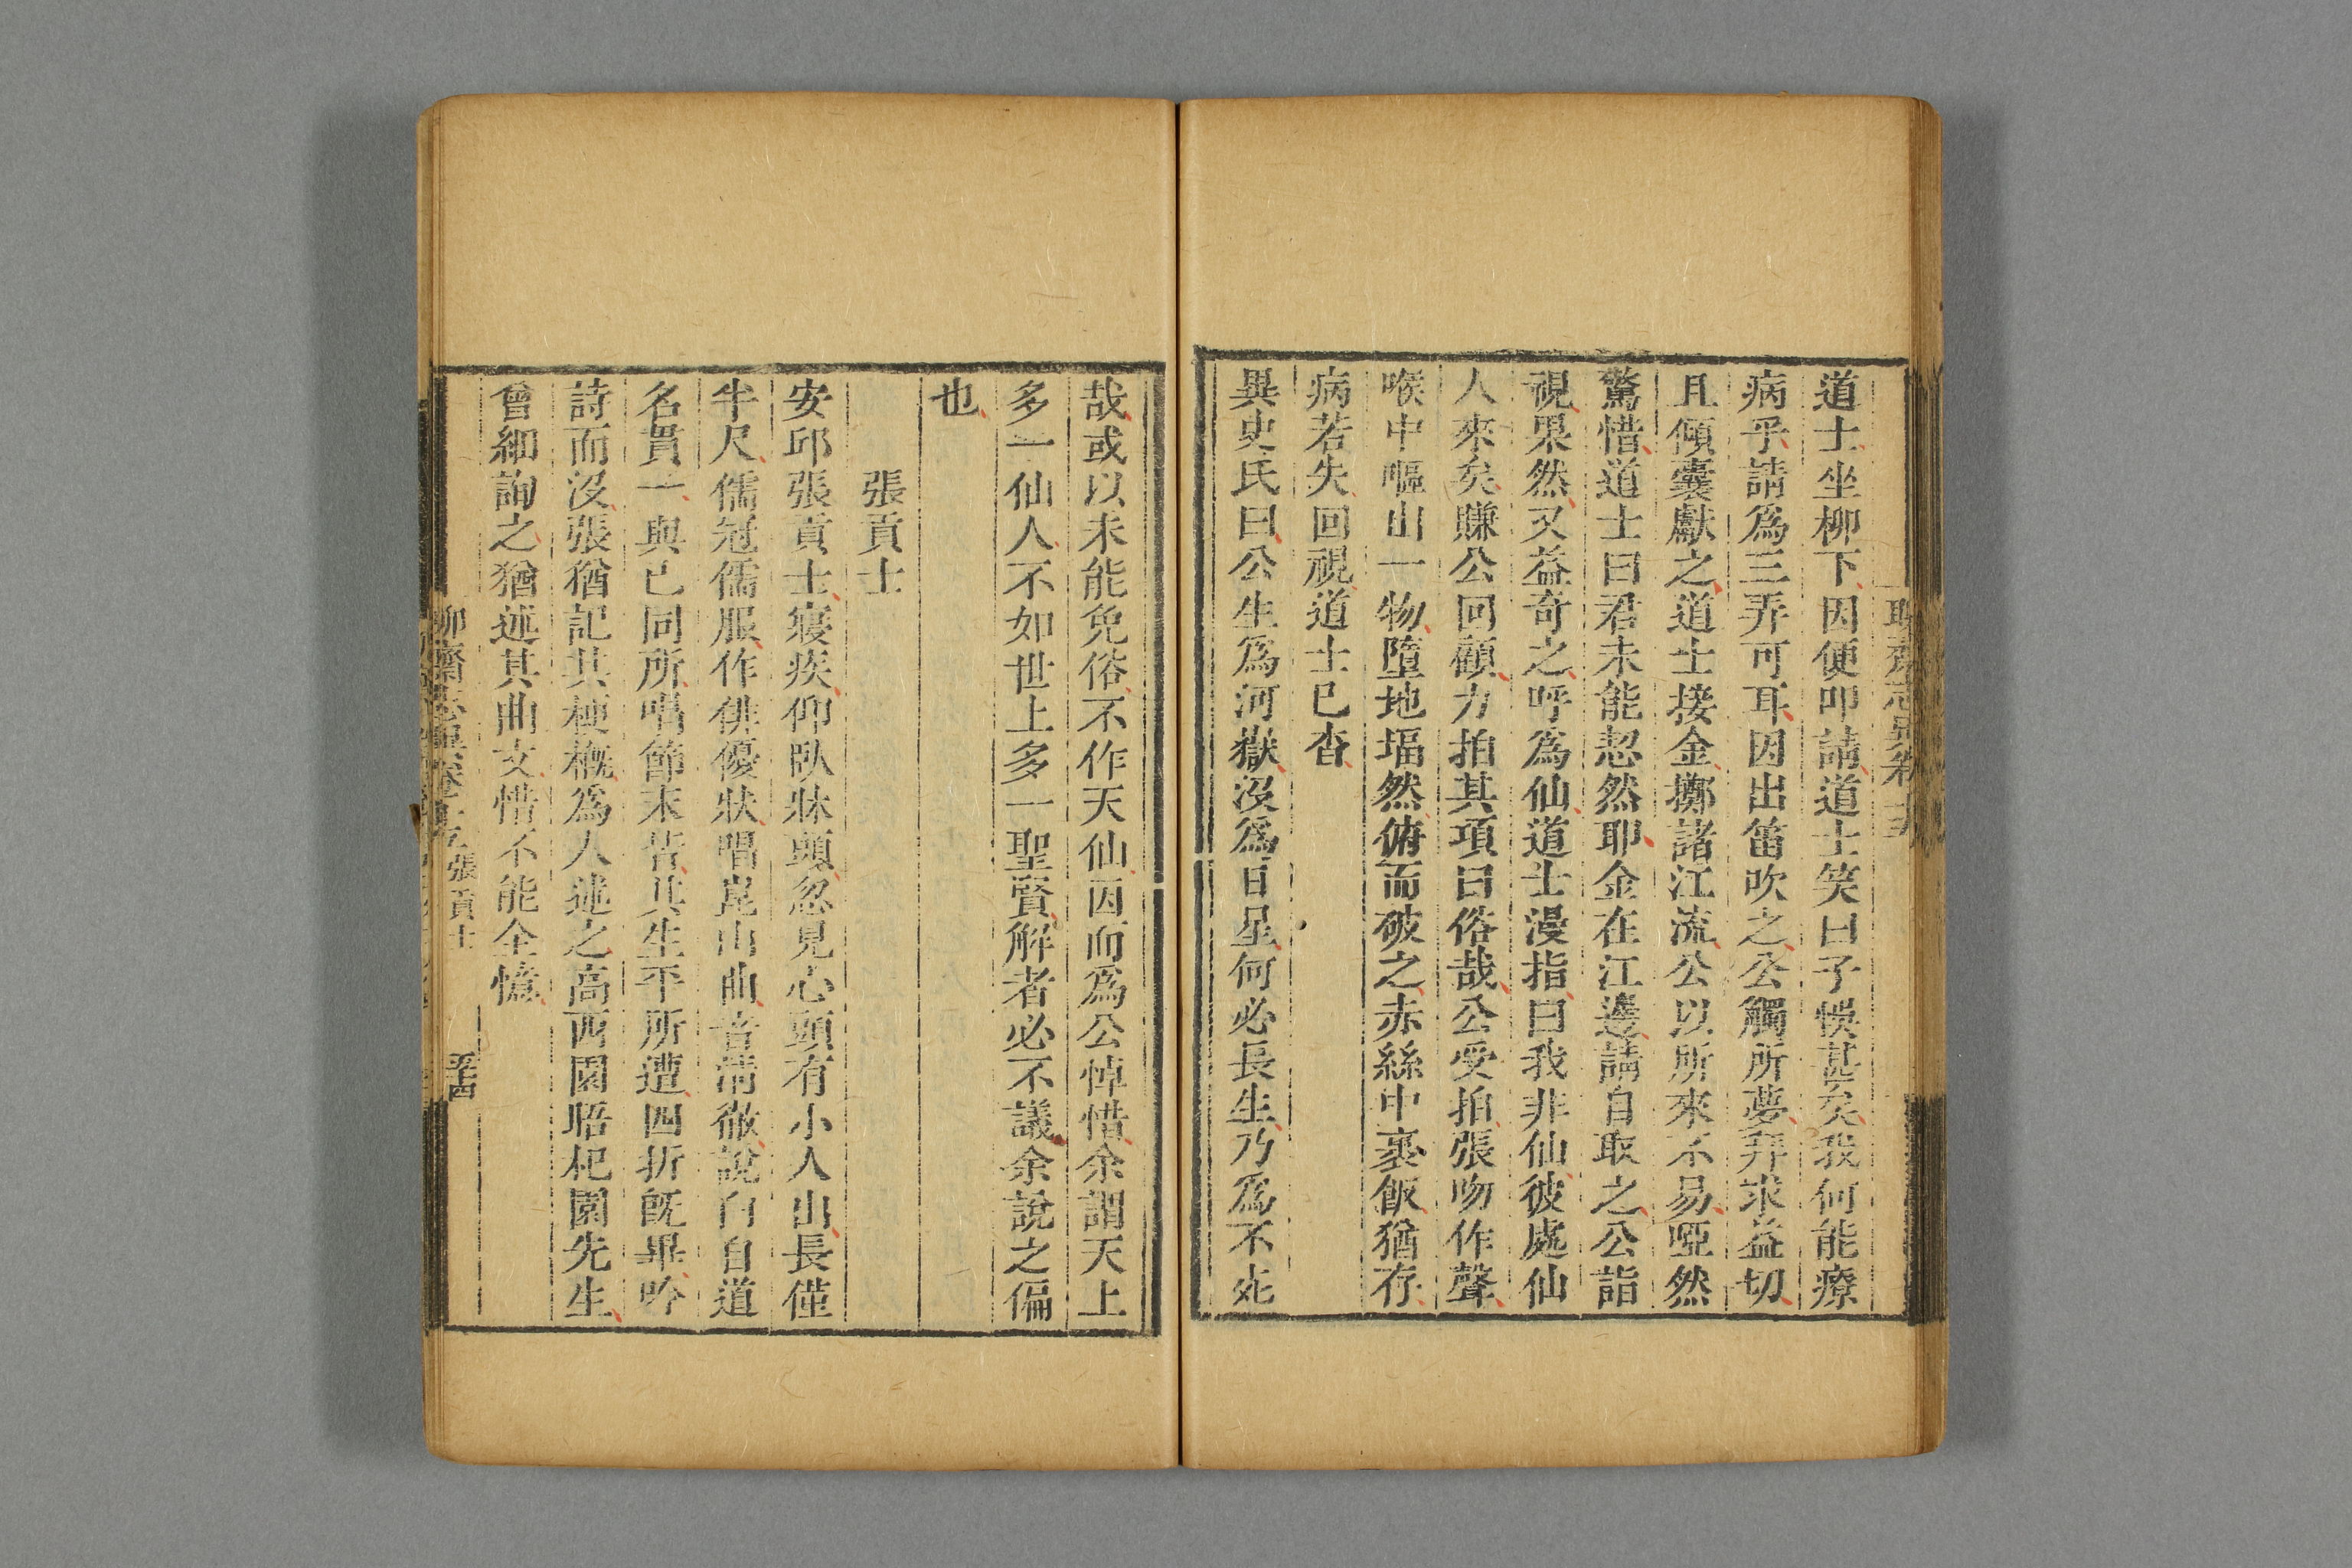 聊齋志異卷十五
道士坐柳下因便叩請道士笑曰子悞甚矣我何能療
病乎請為三弄可耳因出笛吹之公觸所夢拜求益切
且傾囊獻之道士接金擲諸江流公以所來不易啞然
驚惜道士曰君未能恝然耶金在江邊請自取之公詣
視果然又益奇之呼為仙道士漫指曰我非仙彼處仙
人來矣賺公回顧力拍其項曰俗哉公受拍張吻作聲
喉中嘔出一物墮地堛然俯而破之赤絲中裹飯猶存
病若失回視道士已杳
異史氏曰公生為河嶽沒為日星何必長生乃為不死
哉或以未能免俗不作天仙因而為公悼惜余謂天上
多一仙人不如世上多一聖賢解者必不議余說之偏
也
張貢士
安邱張貢士寢疾仰臥牀頭忽見心頭有小人出長僅
半尺儒冠儒服作俳優狀唱崑山曲音清徹說白自道
名貫一與己同所唱節末皆其生平所遭四折旣畢吟
詩而沒張猶記其梗槪為人述之高西園晤杞園先生
曾細詢之猶述其曲文惜不能全憶
聊齋志異卷十五 張貢士 五十四